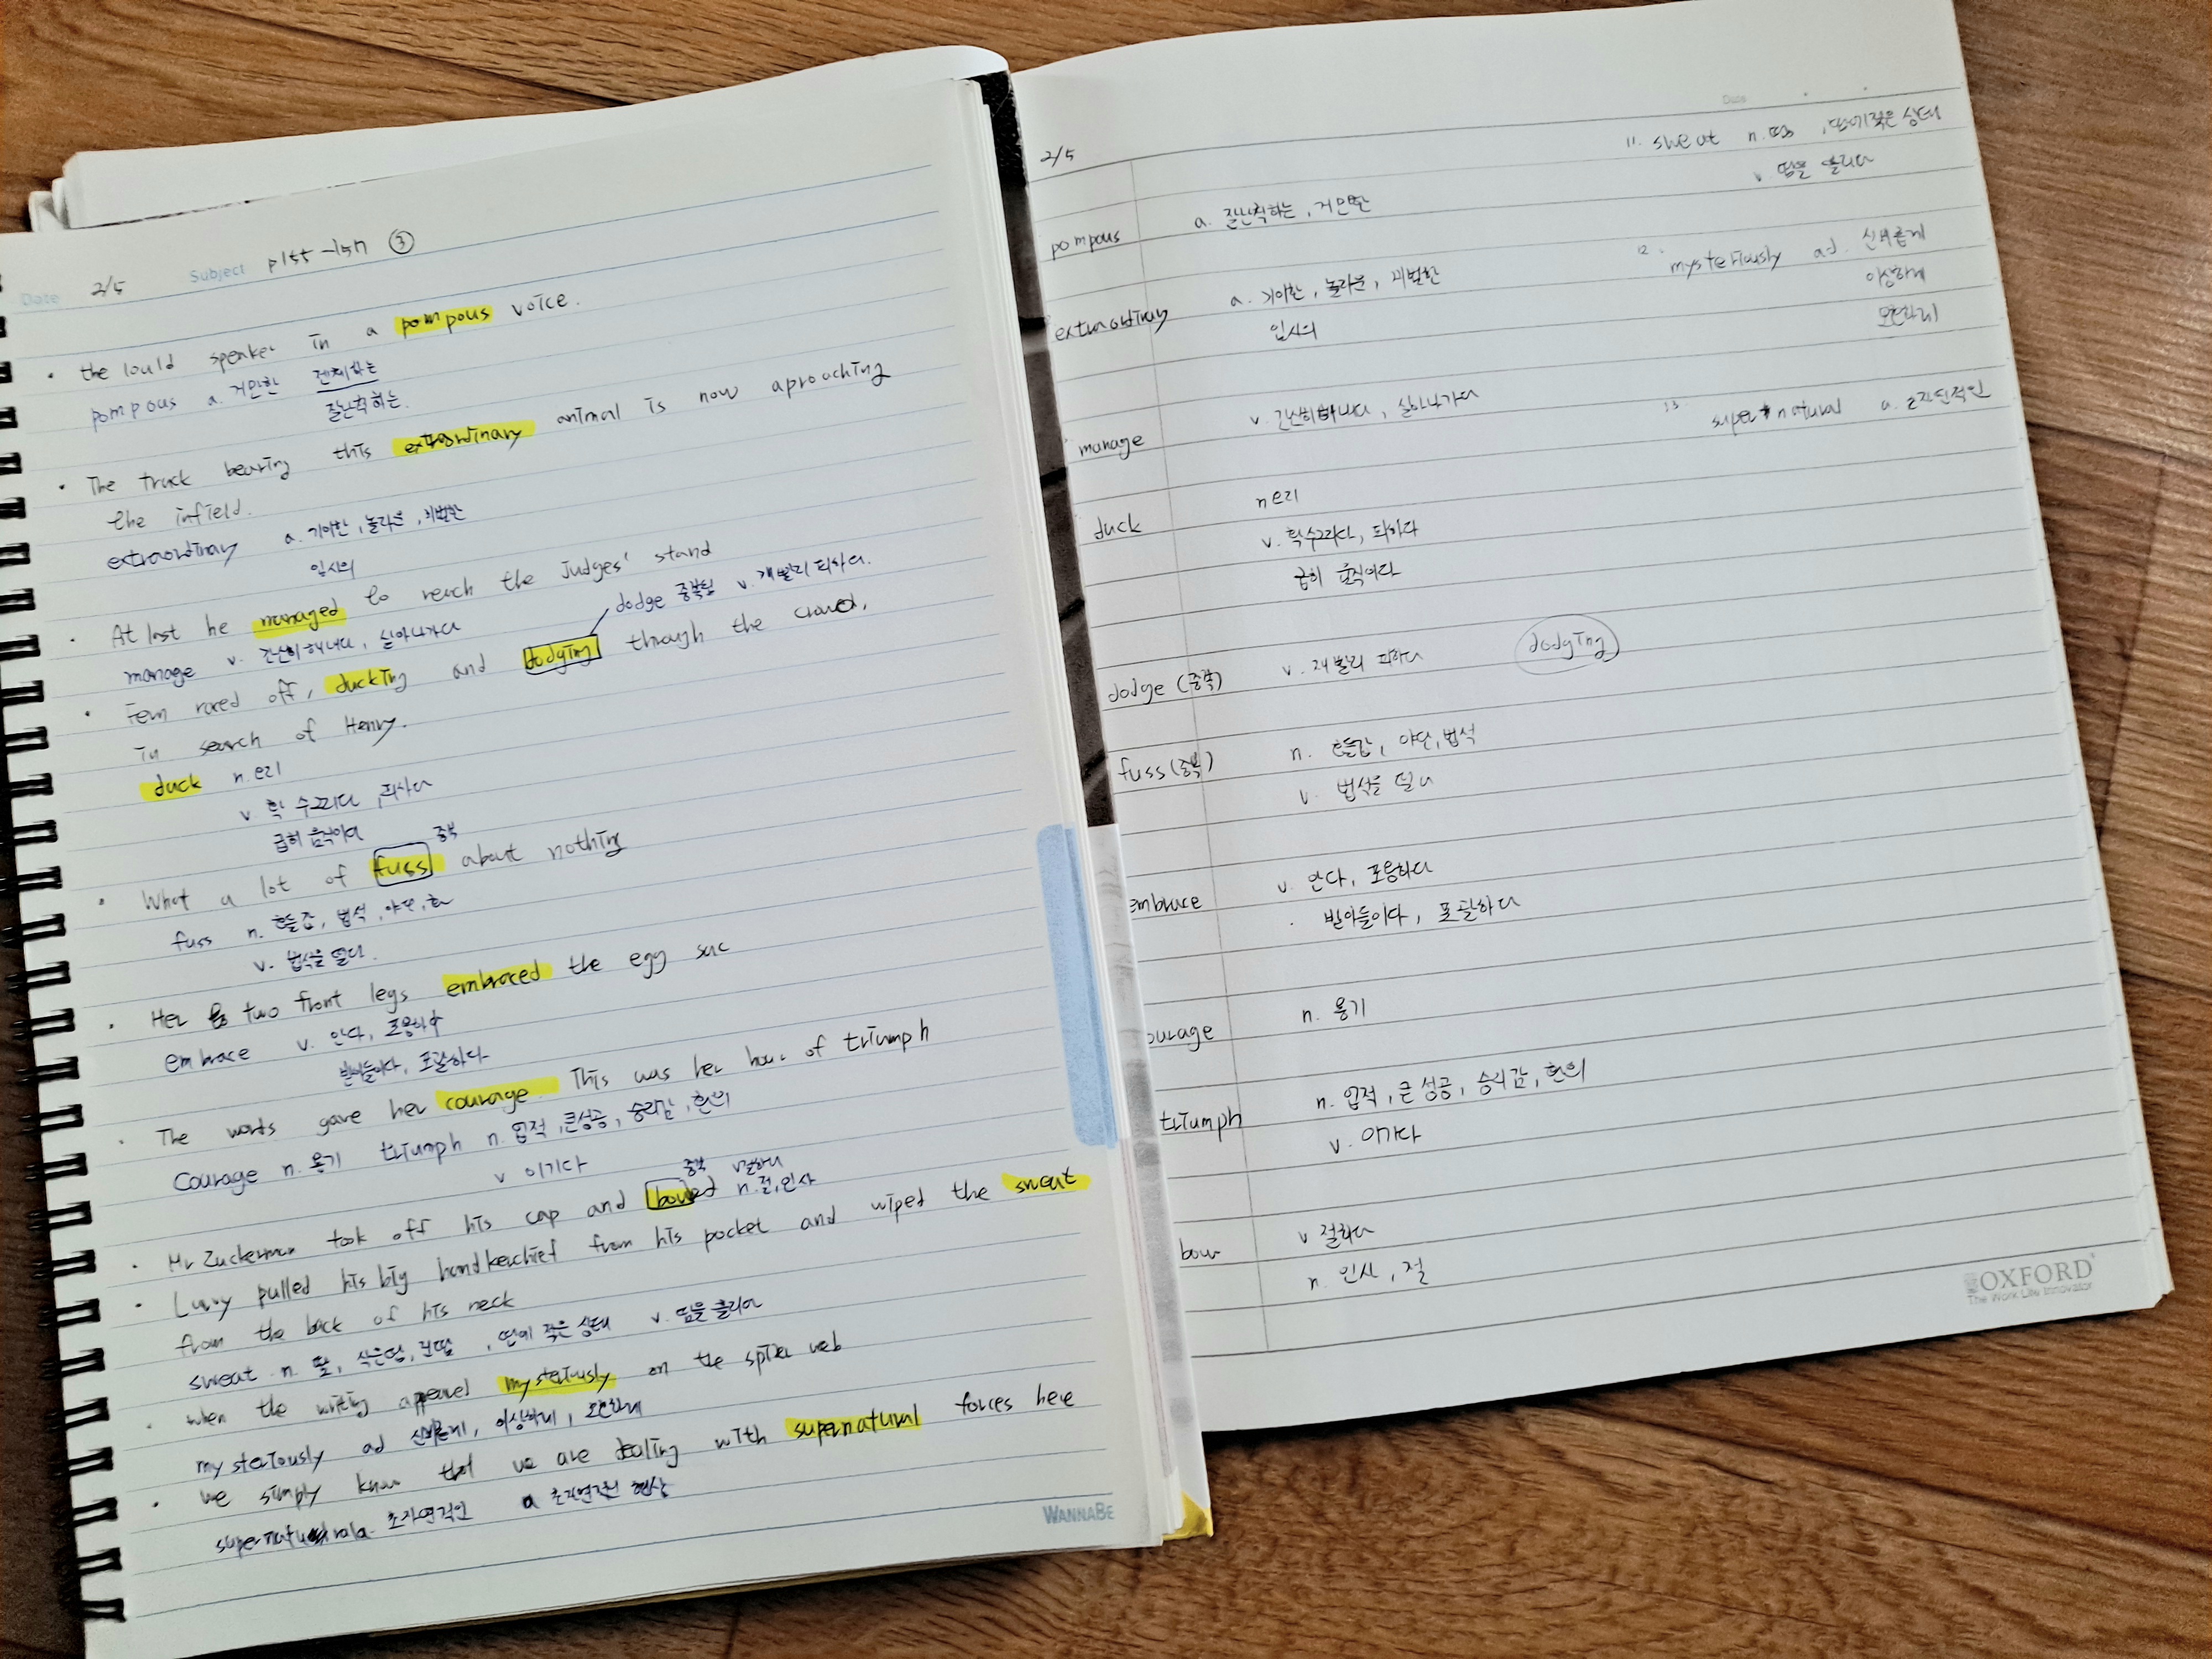 Date 2/5 Subject p155-157 ③
· the lould speaker in a pompous voice.
pompous a. 거만한 젠체하는
잘난척하는.
· The truck bearing this extraordinary animal is now aprouching
the infield.
extraordinary a. 기이한, 놀라운, 비범한
임시의
· At last he managed to reach the Judges' stand
dodge 중복됨 v. 재빨리 피하다.
manage v. 간신히해내다, 살아나가다
· Fern raced off, ducking and dodging through the crowd,
in search of Henry.
duck n. 오리
v. 휙 수그리다, 피하다
급히 움직이다
중복
· What a lot of fuss about nothing
fuss n. 호들갑, 법석, 야단,
v. 법석을 떨다.
· Her two front legs embraced the egg sac
embrace v. 안다, 포옹하다
받아들이다, 포괄하다
· The words gave her courage. This was her hour of triumph
courage n. 용기 triumph n. 업적, 큰성공, 승리감, 환희
v 이기다
중복 v절하다
· Mr Zuckerman took off his cap and bowed n. 절, 인사
· Lurvy pulled his big handkerchief from his pocket and wiped the sweat
from the back of his neck
sweat n. 땀, , 땀에 젖은 상태 v. 땀을 흘리다
· when the writing appeared mysteriously on the spider web
mysteriously ad 신비롭게, 이상하게, 모호하게
· we simply know that we are dealing with supernatural forces here
supernatural a. 초자연적인 a 초자연적인 현상
WANNABE
Date
2/5
pompous a. 잘난척하는, 거만한
extraordinary a. 기이한, 놀라운, 비범한
임시의
manage v. 간신히해내다, 살아나가다
duck n 오리
v. 휙수그리다, 피하다
급히 움직이다
dodge (중복) v. 재빨리 피하다 dodging
fuss (중복) n. 호들갑, 야단, 법석
v. 법석을 떨다
embrace v. 안다, 포옹하다
· 받아들이다, 포괄하다
ourage n. 용기
triumph n. 업적, 큰 성공, 승리감, 환희
v. 이기다
bow v 절하다
n. 인사, 절
11. sweat n. 땀, 땀에젖은 상태
v. 땀을 흘리다
12. mysteriously ad. 신비롭게
이상하게
모호하게
13. supernatural a. 초자연적인
OXFORD
The Work Life Innovator